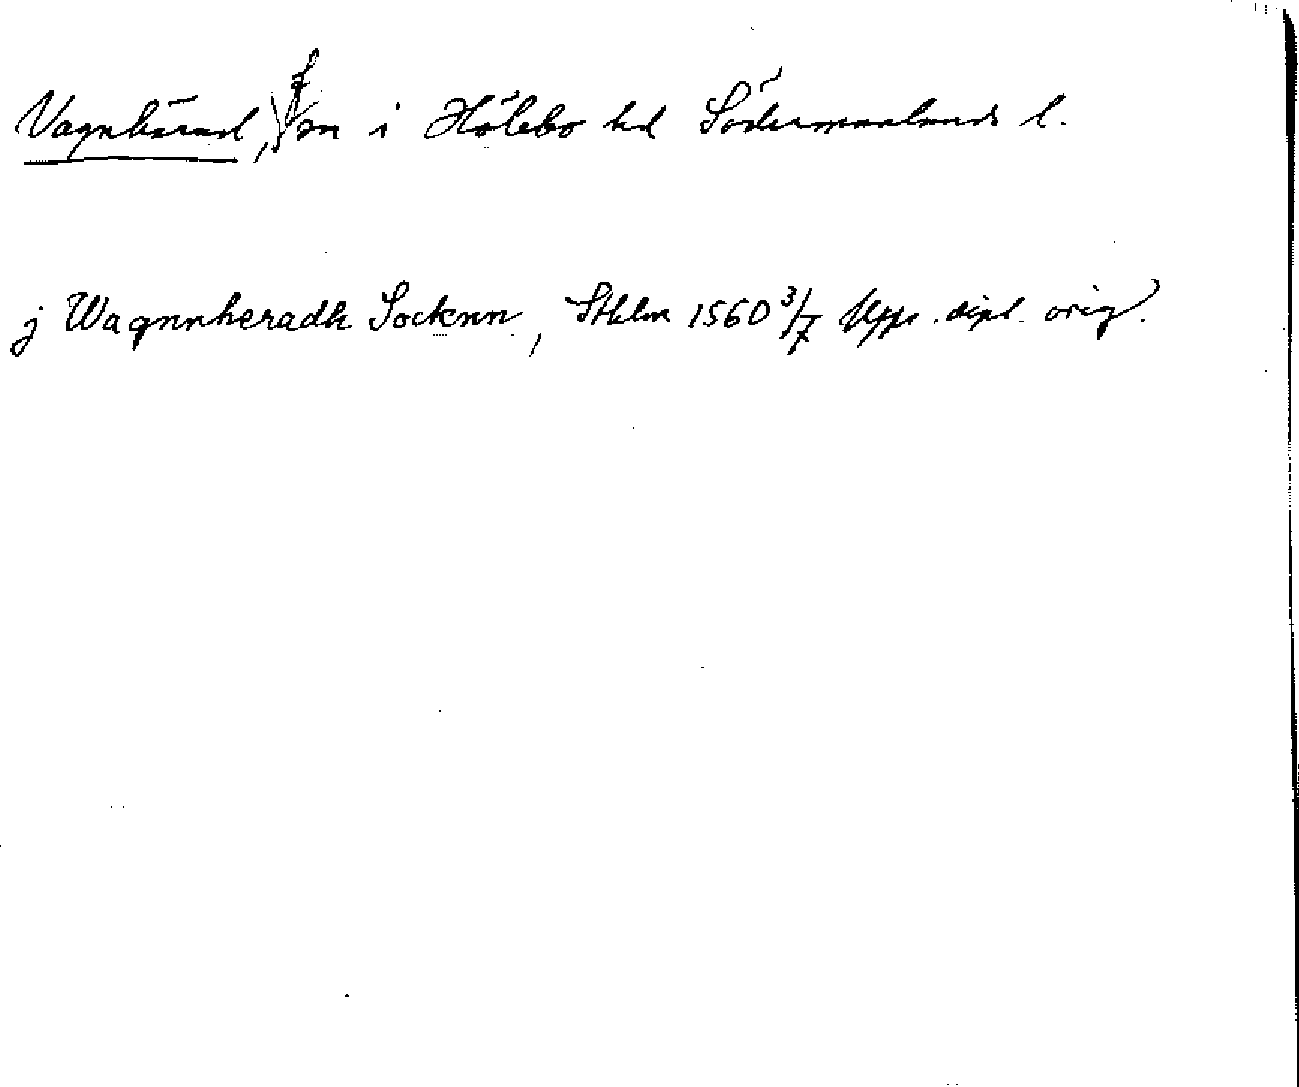 Vagnhärad, sn i Hölebo hd Södermanlands l.
j Wagnnheradh Socknn, Sthlm 1560 3/7 Upps. dipl. orig.